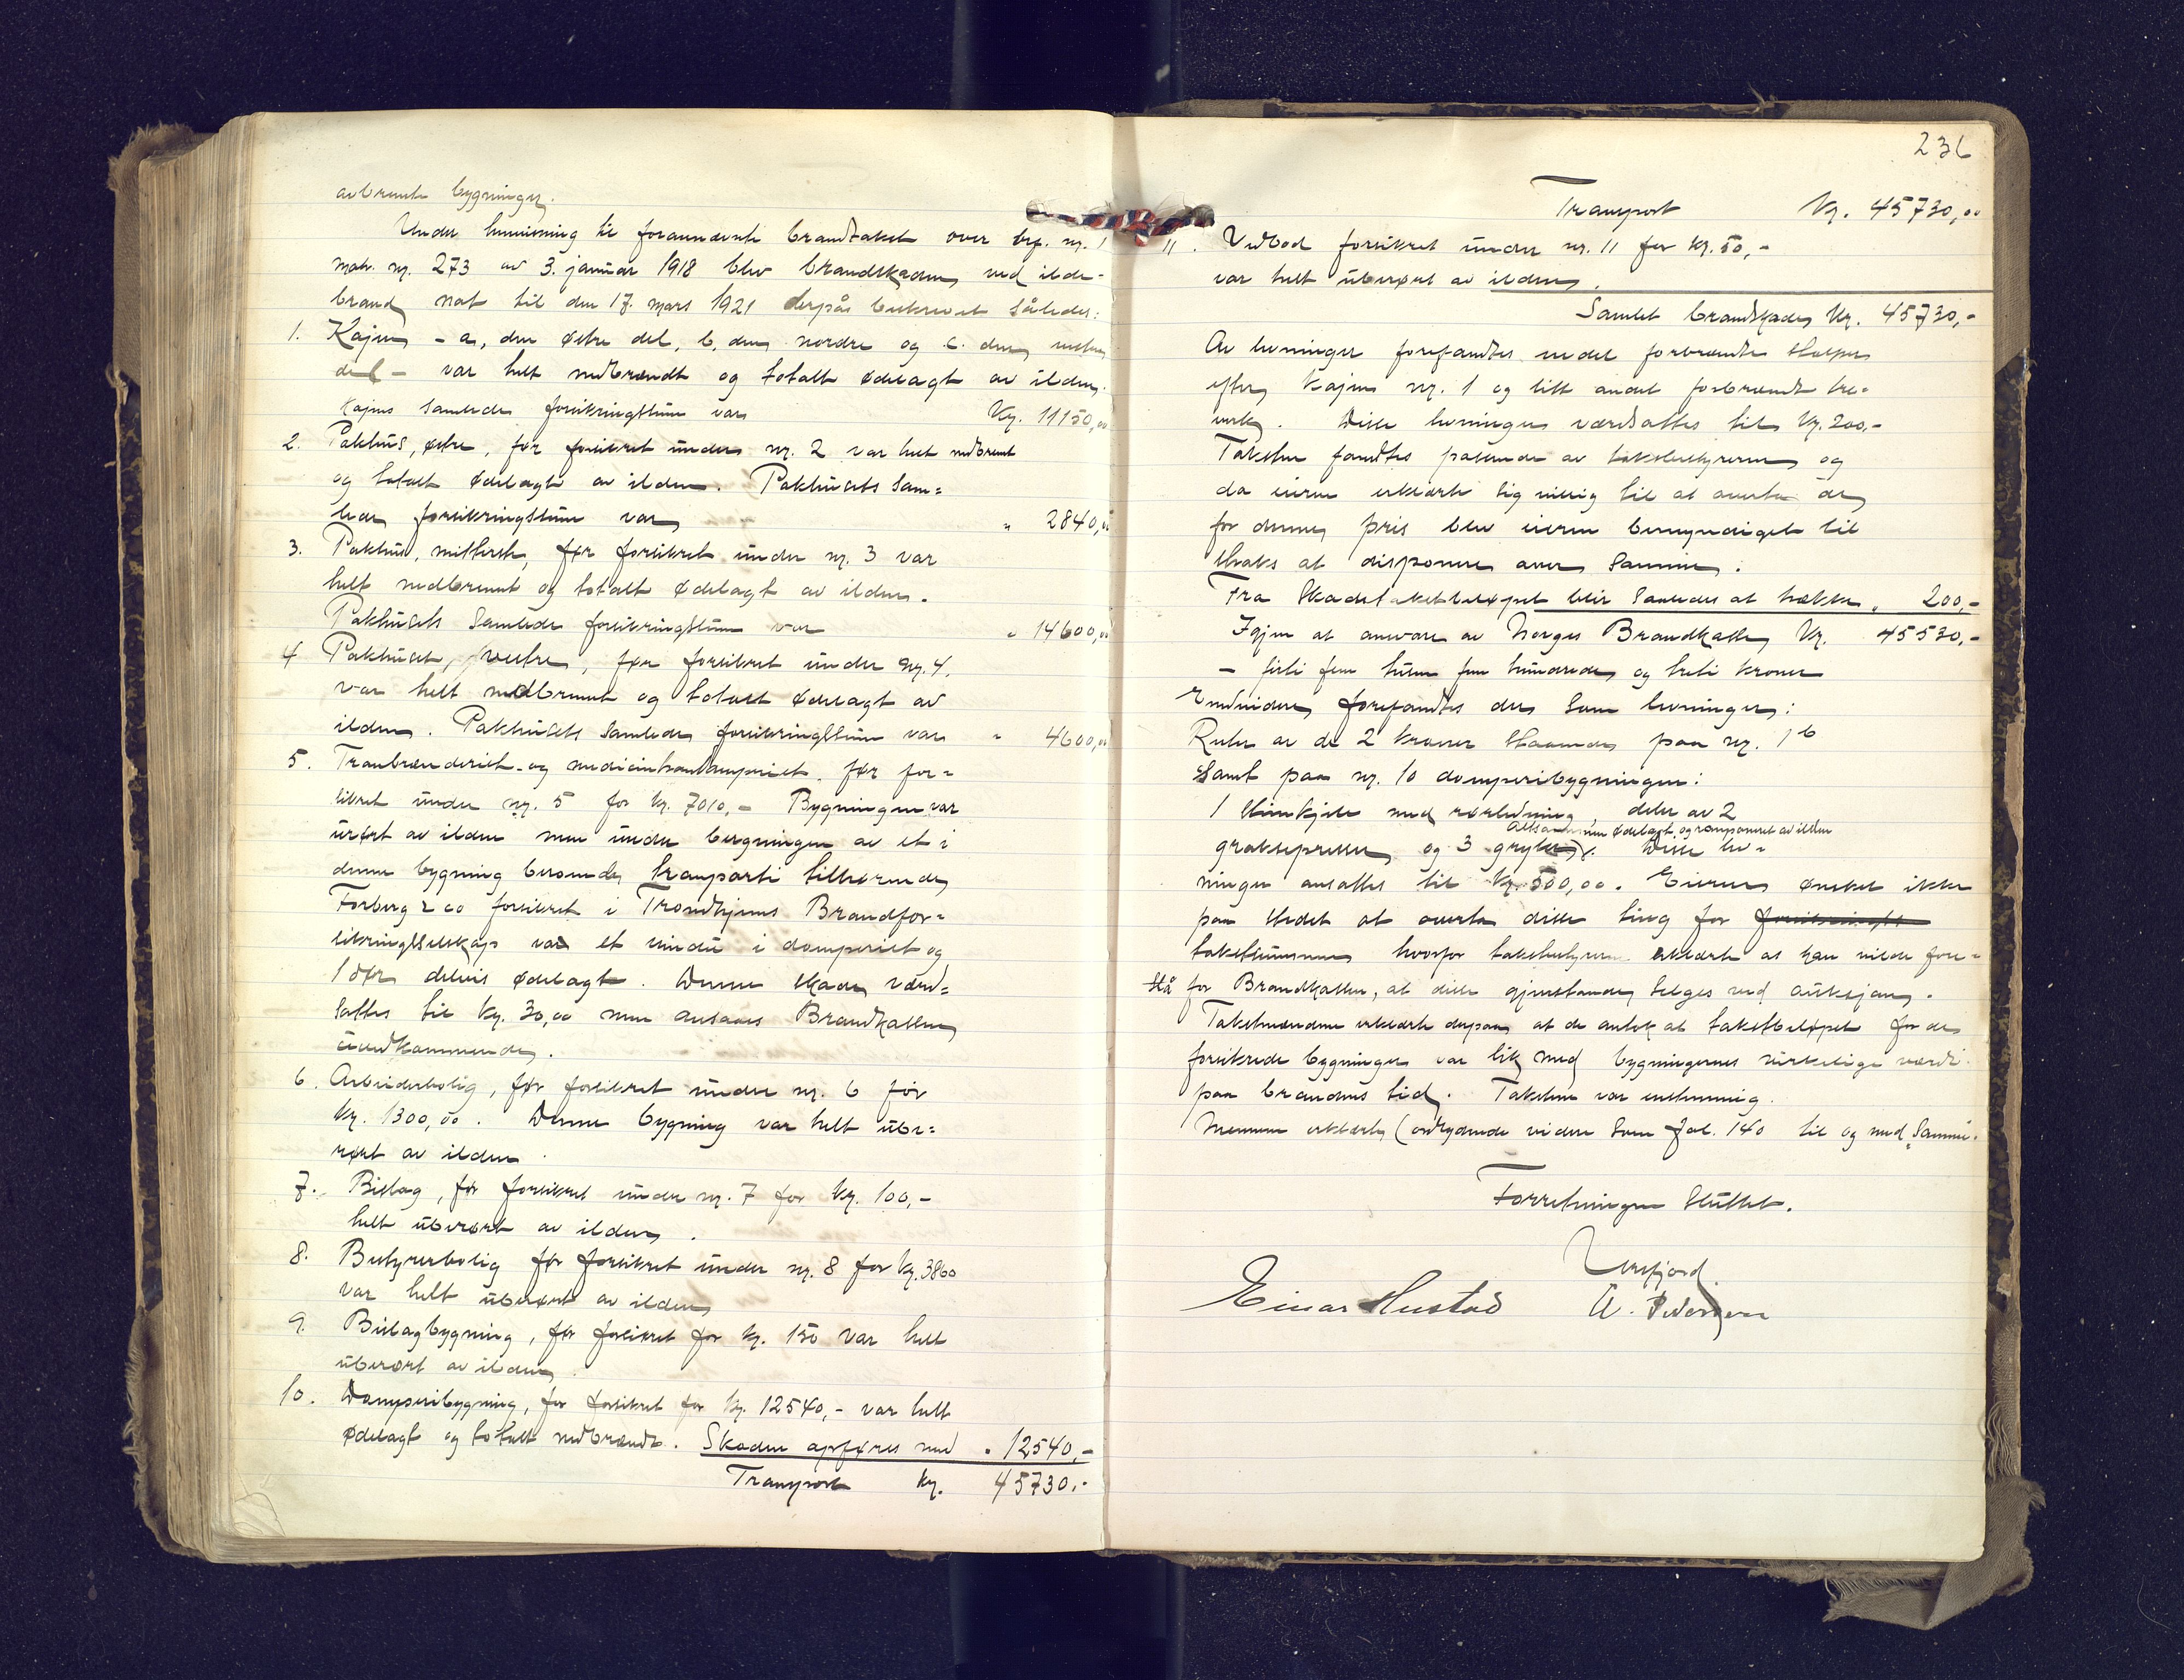 avbrendte bygninger.
Under henvisning til forannævnte brandtakst over brf. nr. 1
matr. nr. 273 av 3. januar 1918 blev brandskaden ved ilde-
brand nat til den 17. mars 1921 derpå beskrevet således:
1. Kajen - a, den østre del, b, den nordre og c. den vestre
del - var helt nedbrændt og totalt ødelagt av ilden.
Kajens samlede forsikringssum var Kr. 11150,00
2. Pakhus, østre, før forsikret under nr. 2 var helt nedbrent
og totalt ødelagt av ilden. Pakhusets sam=
lede forsikringssum var " 2840,00
3. Pakhus, mitterste, før forsikret under nr. 3 var
helt nedbrennt og totalt ødelagt av ilden.
Pakhusets samlede forsikringssum var " 14600,00
4 Pakhuset, vestre, før forsikret under nr. 4.
var helt nedbrennt og totalt ødelagt av
ilden. Pakhusets samlede forsikringssum var " 4600,00
5. Tranbrænderiet- og medicintrandamperiet. før for=
sikret under nr. 5 for kr. 7010,- Bygningen var
urørt av ilden men under bergningen av et i
denne bygning beroende tranparti tilhørende
Forberg & co forsikret i Trondhjems Brandfor=
sikringsselskap var et vindu i damperiet og
1 dør delvis ødelagt. Denne skade værd=
sattes til kr. 30,00 men ansaaes Brandkassen
uvedkommende.
6. Arbeiderbolig, før forsikret under nr. 6 for
kr. 1300,00. Denne bygning var helt ube=
rørt av ilden.
7. Bislag, før forsikret under nr. 7 for kr. 100,-
helt uberørt av ilden.
8. Bestyrerbolig før forsikret under nr. 8 for kr. 3860
var helt uberørt av ilden
9. Bislagbygning, før forsikret for kr. 150 var helt
uberørt av ilden.
10. Damperibygning, før forsikret for kr. 12540,- var helt
ødelagt og totalt nedbrændt. Skaden opføres med " 12540,-
Transport kr. 45730.-
236
Transport Kr. 45730,00
11. Vedbod forsikret under nr. 11 for kr. 50,-
var helt uberørt av ilden.
Samlet brandskade Kr. 45730,-
Av levninger forefandtes endel forbrændte stolper
efter kajen nr. 1 og litt andet forbrændt tre=
verk. Disse levninger værdsattes til kr. 200,-
Taksten fandtes passende av takstbestyreren og
da eieren erklærte sig villig til at overta de
for denne pris blev eieren bemyndiget til
straks at disponere over samme.
Fra skadetakstbeløpet blir saaledes at trække " 200,-
Igjen at ansvare av Norges Brandkasse Kr. 45530,-
- førti fem tusen fem hundrede og treti kroner
Endvidere forefandtes der som levninger:
Rester av de 2 kraner staaende paa nr. 1b
samt paa nr. 10 damperibygningen:
1 stimkjele med rørledning, deler av 2
altsammen ødelagt og ramponeret av ilden
graksepresser og 3 gryter. Disse lev=
ninger ansattes til kr. 500,00. Eieren ønsket ikke
paa stedet at overta disse ting for forsikrings
takstsummen hvorfor takstbestyreren erklærte at han vilde fore=
slå for Brandkassen, at disse gjenstande selges ved auksjon.
Takstmændene erklærte derpaa at de antok at takstbeløpet for de
forsikrede bygninger var lik med bygningernes virkelige værdi
paa brandens tid. Taksten var enstemmig.
Mennene erklærte (ordlydende videre som fol. 140 til og med "samme."
Forretningen sluttet.
Einar Hustad
A. Pedersen